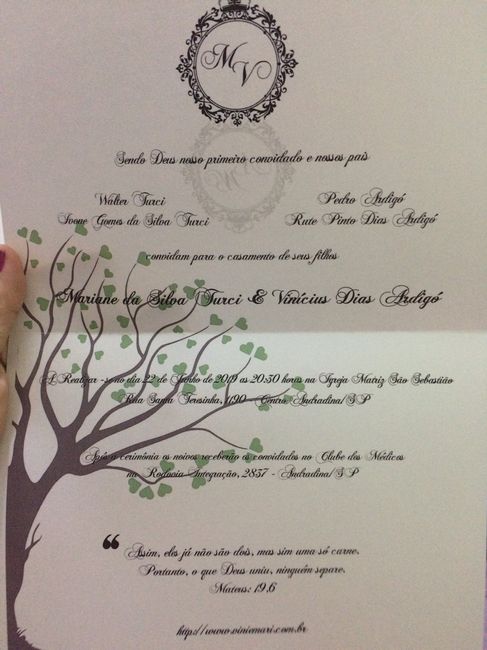 M V
Sendo Deus nosso primeiro convidado e nossos pais
Walter Turci Pedro Ardigó
Ivone Gomes da Silva Turci Rute Pinto Dias Ardigó
convidam para o casamento de seus filhos
Mariane da Silva Turci & Vinícius Dias Ardigó
A Realizar-se no dia 22 de Junho de 2019 as 20:30 horas na Igreja Matriz São Sebastião
Rua Santa Teresinha, 1190 - Centro, Andradina/SP
Após a cerimônia os noivos receberão os convidados no Clube dos Médicos
na Rodovia Integração, 2857 - Andradina/SP
❝ Assim, eles já não são dois, mas sim uma só carne.
Portanto, o que Deus uniu, ninguém separe.
Mateus: 19,6
http://www.viniemari.com.br